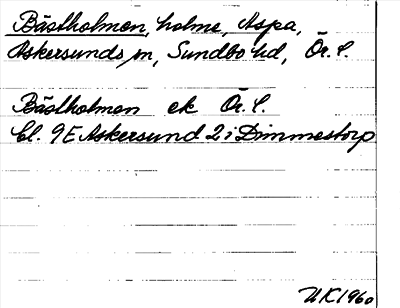 Bästholmen, holme, Aspa,
Askersunds sn, Sundbo hd, Ör. l.
Bästholmen ek Ör. l.
Bl. 9E Askersund 2 i Dimmestorp
UK1960